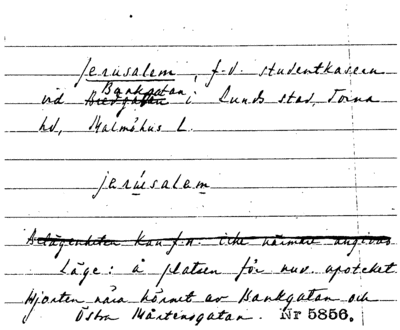 Jerusalem, f.d. studentkasern
Bankgatan
vid Bredgatan i Lunds stad, Torna
hd, Malmöhus L.
jerúsalem
Belägenheten kan f.n. icke närmare angivas
Läge: å platsen för nuv. apoteket
Hjorten nära hörnet av Bankgatan och
Östra Mårtensgatan. Nr 5856.